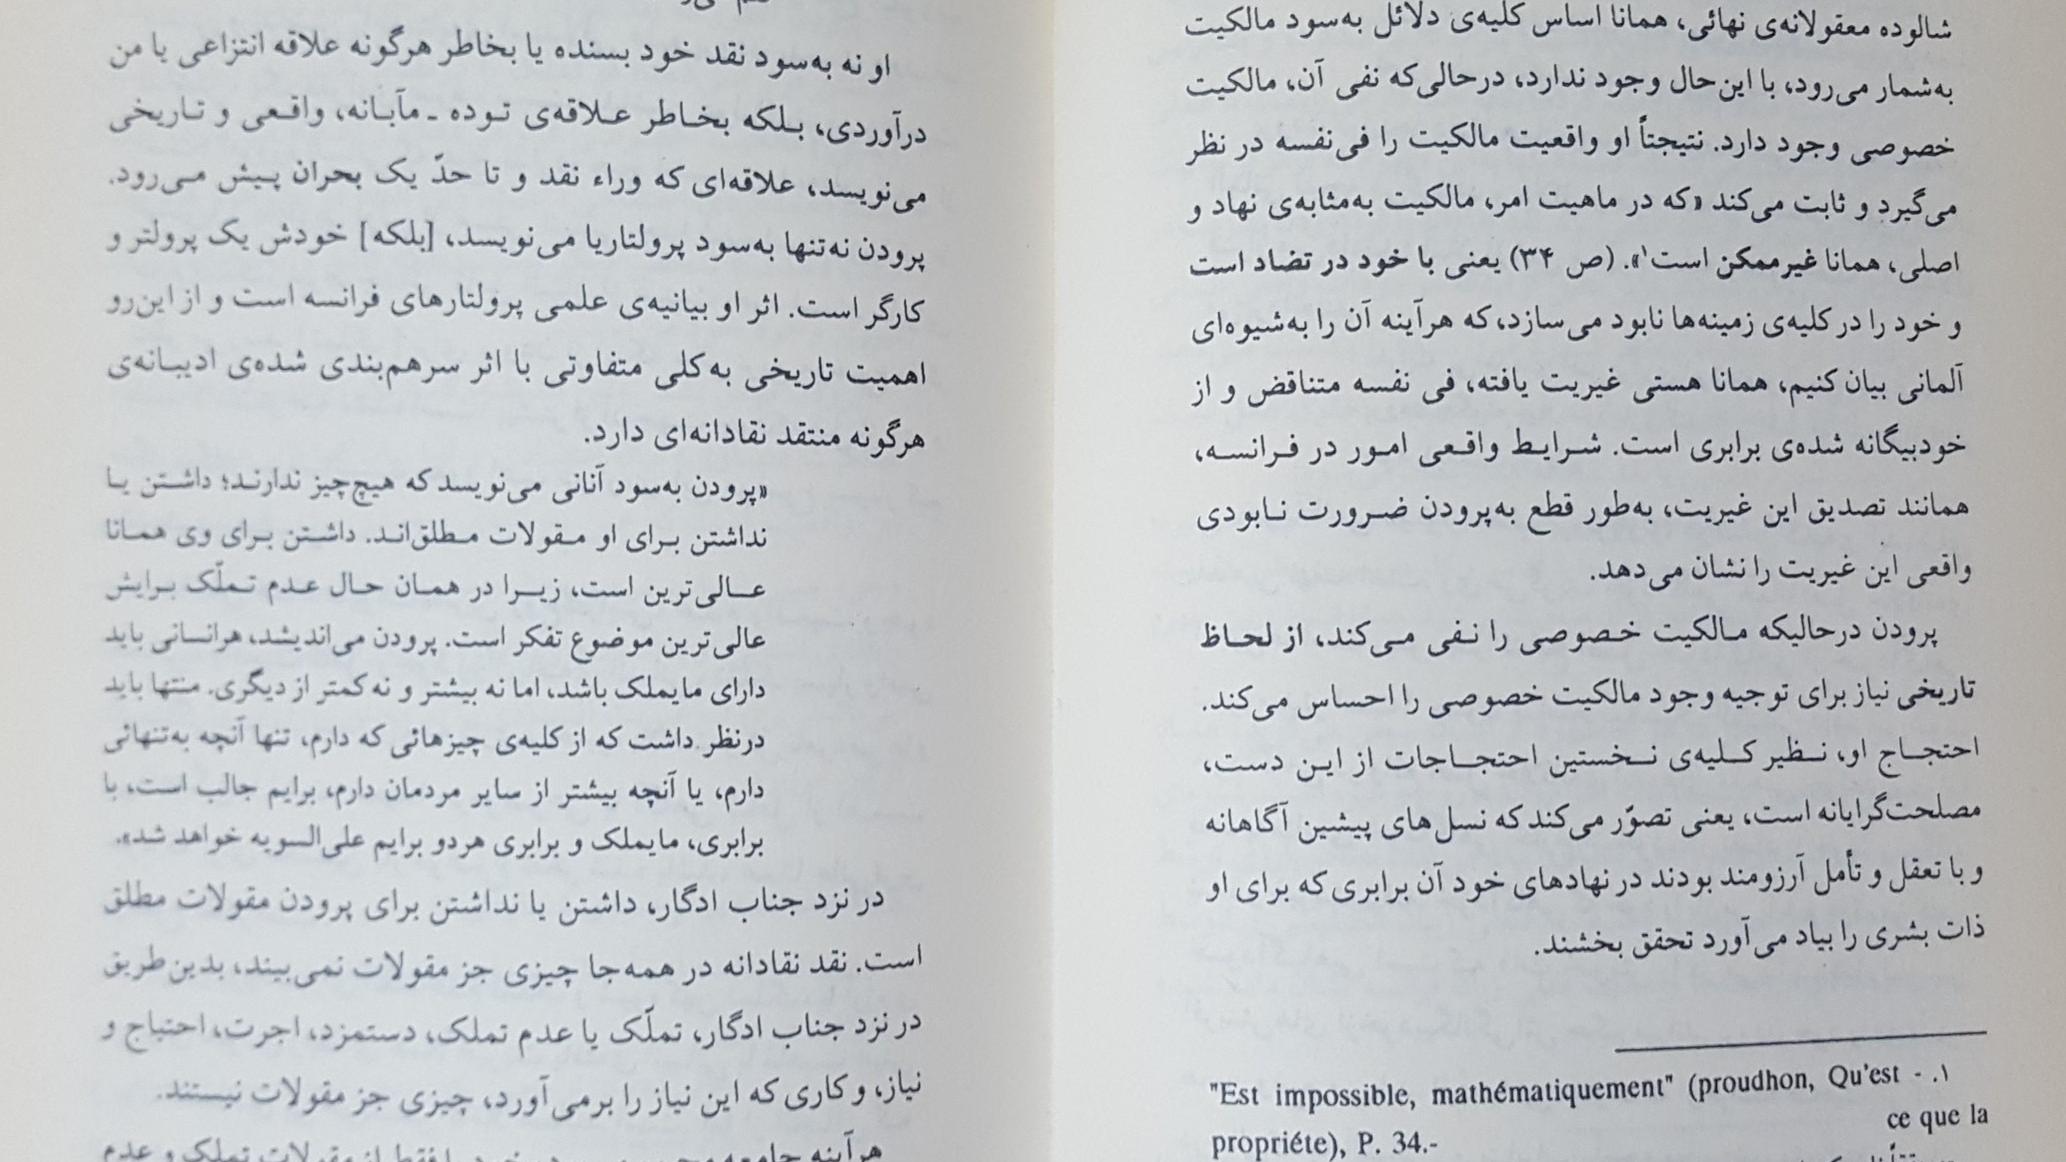 شالوده معقولانه‌ی نهائی، همانا اساس کلیه‌ی دلائل به‌سود مالکیت
به‌شمار می‌رود، با این‌حال وجود ندارد، درحالی‌که نفی آن، مالکیت
خصوصی وجود دارد. نتیجتاً او واقعیت مالکیت را فی‌نفسه در نظر
می‌گیرد و ثابت می‌کند «که در ماهیت امر، مالکیت به‌مثابه‌ی نهاد و
اصلی، همانا غیرممکن است۱». (ص ۳۴) یعنی با خود در تضاد است
و خود را در کلیه‌ی زمینه‌ها نابود می‌سازد، که هرآینه آن را به‌شیوه‌ای
آلمانی بیان کنیم، همانا هستی غیریت یافته، فی نفسه متناقض و از
خودبیگانه شده‌ی برابری است. شرایط واقعی امور در فرانسه،
همانند تصدیق این غیریت، به‌طور قطع به‌پرودن ضرورت نابودی
واقعی این غیریت را نشان می‌دهد.
پرودن درحالیکه مالکیت خصوصی را نفی می‌کند، از لحاظ
تاریخی نیاز برای توجیه وجود مالکیت خصوصی را احساس می‌کند.
احتجاج او، نظیر کلیه‌ی نخستین احتجاجات از این دست،
مصلحت‌گرایانه است، یعنی تصوّر می‌کند که نسل‌های پیشین آگاهانه
و با تعقل و تأمل آرزومند بودند در نهادهای خود آن برابری که برای او
ذات بشری را بیاد می‌آورد تحقق بخشند.
۱. - "Est impossible, mathématiquement" (proudhon, Qu'est
ce que la
propriéte), P. 34.-
او نه به‌سود نقد خود بسنده یا بخاطر هرگونه علاقه انتزاعی یا من
درآوردی، بلکه بخاطر علاقه‌ی توده ـ مآبانه، واقعی و تاریخی
می‌نویسد، علاقه‌ای که وراء نقد و تا حدّ یک بحران پیش می‌رود.
پرودن نه‌تنها به‌سود پرولتاریا می‌نویسد، [بلکه] خودش یک پرولتر و
کارگر است. اثر او بیانیه‌ی علمی پرولتارهای فرانسه است و از این‌رو
اهمیت تاریخی به‌کلی متفاوتی با اثر سرهم‌بندی شده‌ی ادیبانه‌ی
هرگونه منتقد نقادانه‌ای دارد.
«پرودن به‌سود آنانی می‌نویسد که هیچ‌چیز ندارند؛ داشتن یا
نداشتن برای او مقولات مطلق‌اند. داشتن برای وی همانا
عالی‌ترین است، زیرا در همان حال عدم تملّک برایش
عالی‌ترین موضوع تفکر است. پرودن می‌اندیشد، هرانسانی باید
دارای مایملک باشد، اما نه بیشتر و نه کمتر از دیگری. منتها باید
درنظر داشت که از کلیه‌ی چیزهائی که دارم، تنها آنچه به‌تنهائی
دارم، یا آنچه بیشتر از سایر مردمان دارم، برایم جالب است، با
برابری، مایملک و برابری هردو برایم علی‌السویه خواهد شد».
در نزد جناب ادگار، داشتن یا نداشتن برای پرودن مقولات مطلق
است. نقد نقادانه در همه‌جا چیزی جز مقولات نمی‌بیند، بدین‌طریق
در نزد جناب ادگار، تملّک یا عدم تملک، دستمزد، اجرت، احتیاج و
نیاز، و کاری که این نیاز را برمی‌آورد، چیزی جز مقولات نیستند.